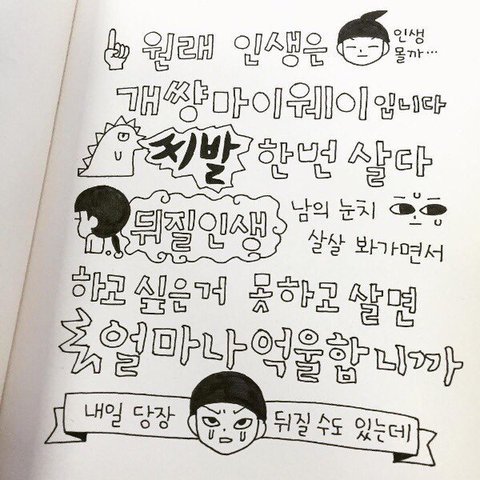 원래 인생은
인생
몰까…
개썅마이웨이입니다
찌발 한번 살다
뒤질인생 남의 눈치
살살 봐가면서
하고싶은거 못하고살면
얼마나억울합니까
내일 당장 뒤질 수도 있는데